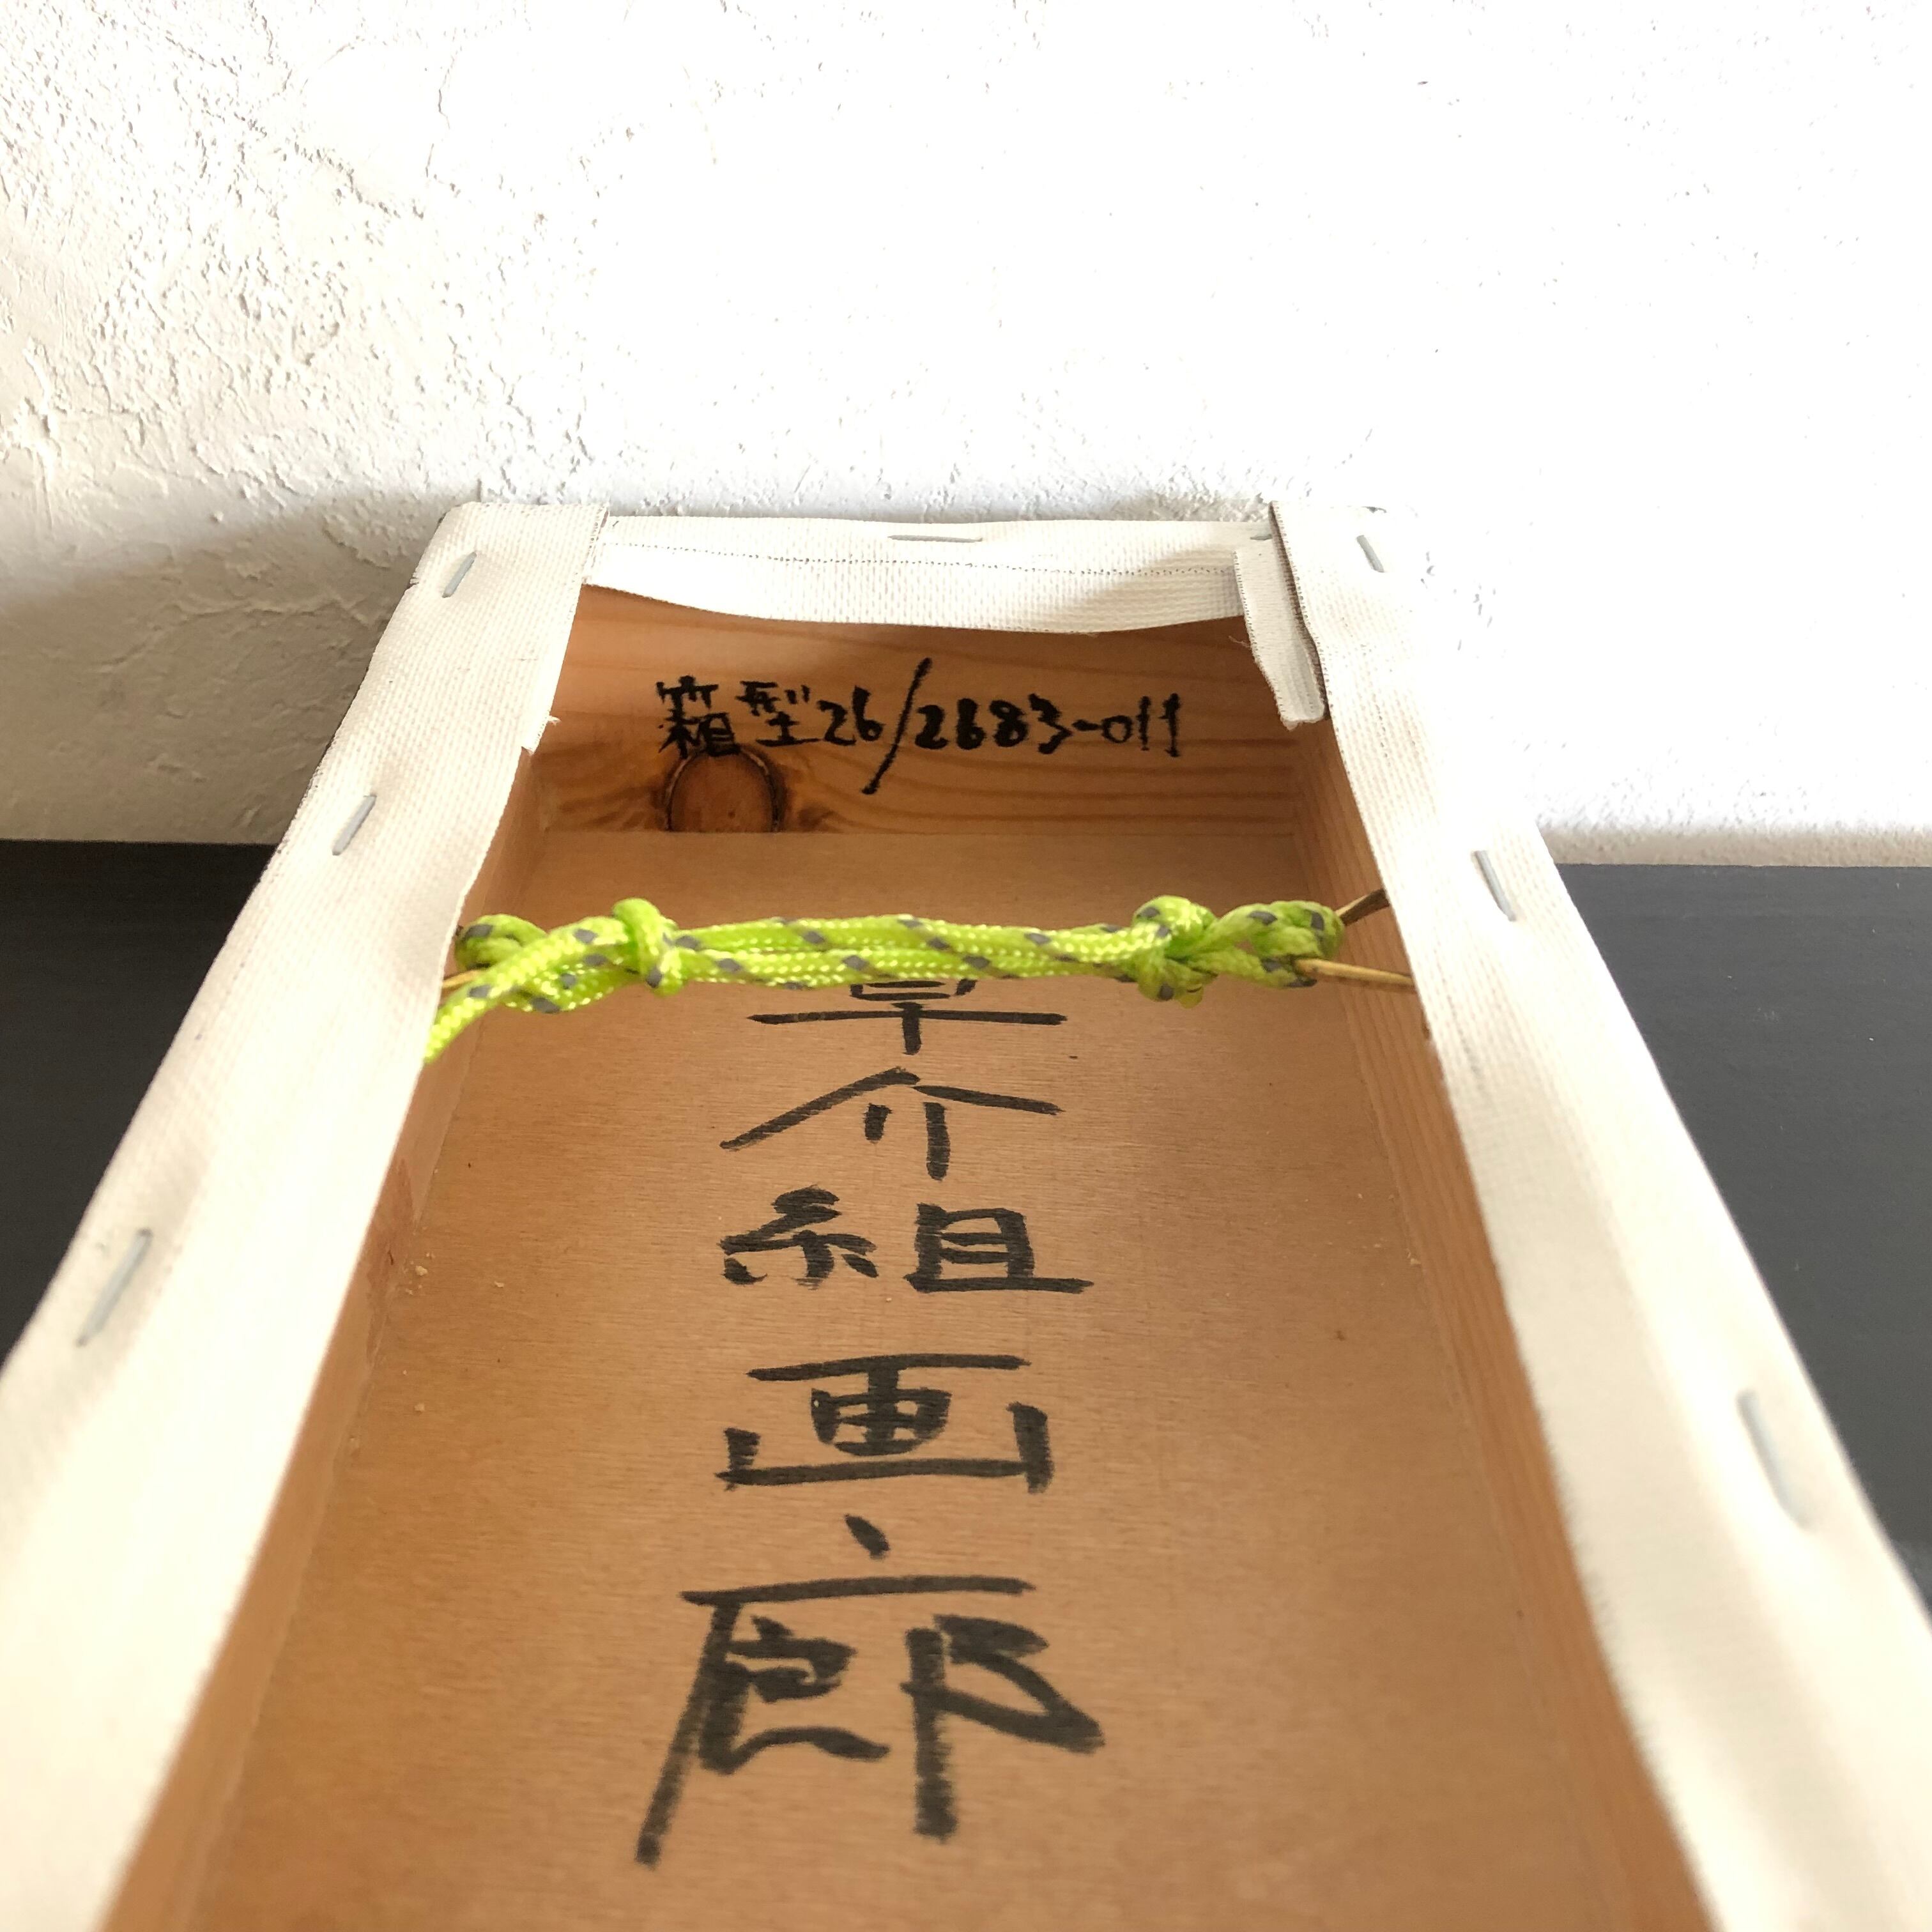 箱型26/2683-011
草介組画廊